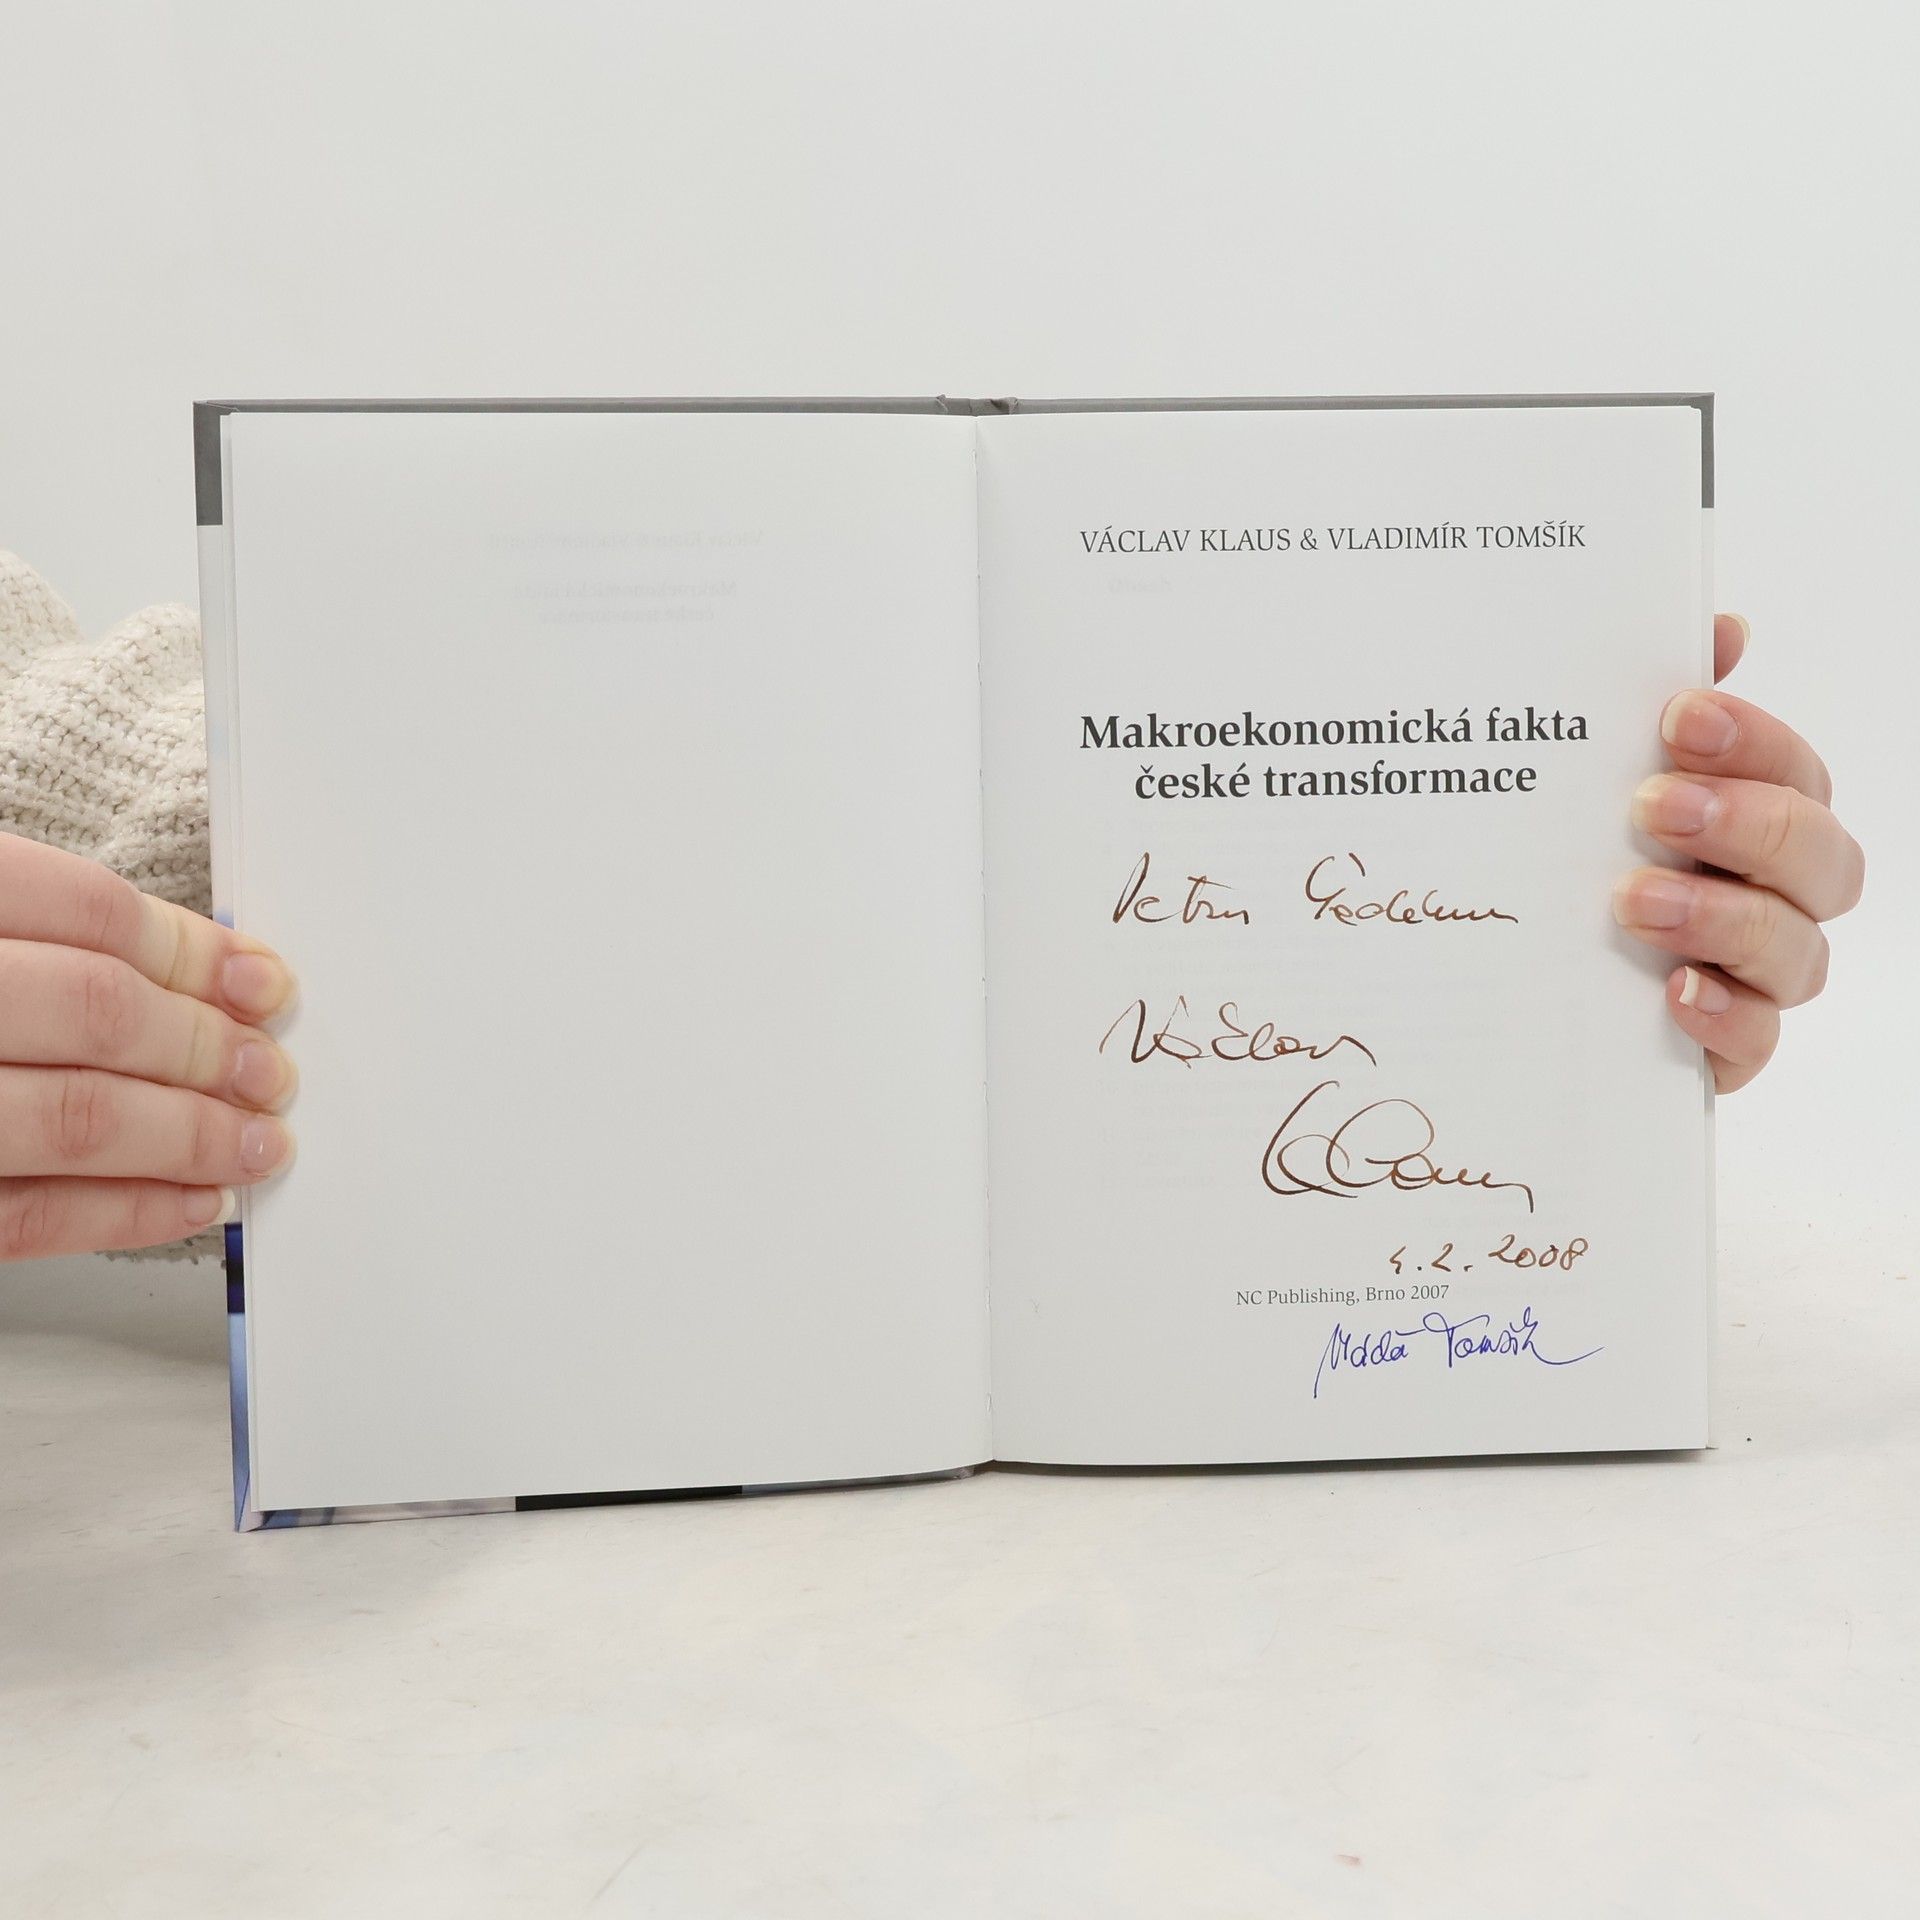 VÁCLAV KLAUS & VLADIMÍR TOMŠÍK
Makroekonomická fakta
české transformace
Petru
Václav
Klaus
4.2.2008
NC Publishing, Brno 2007
Vláďa Tomšík